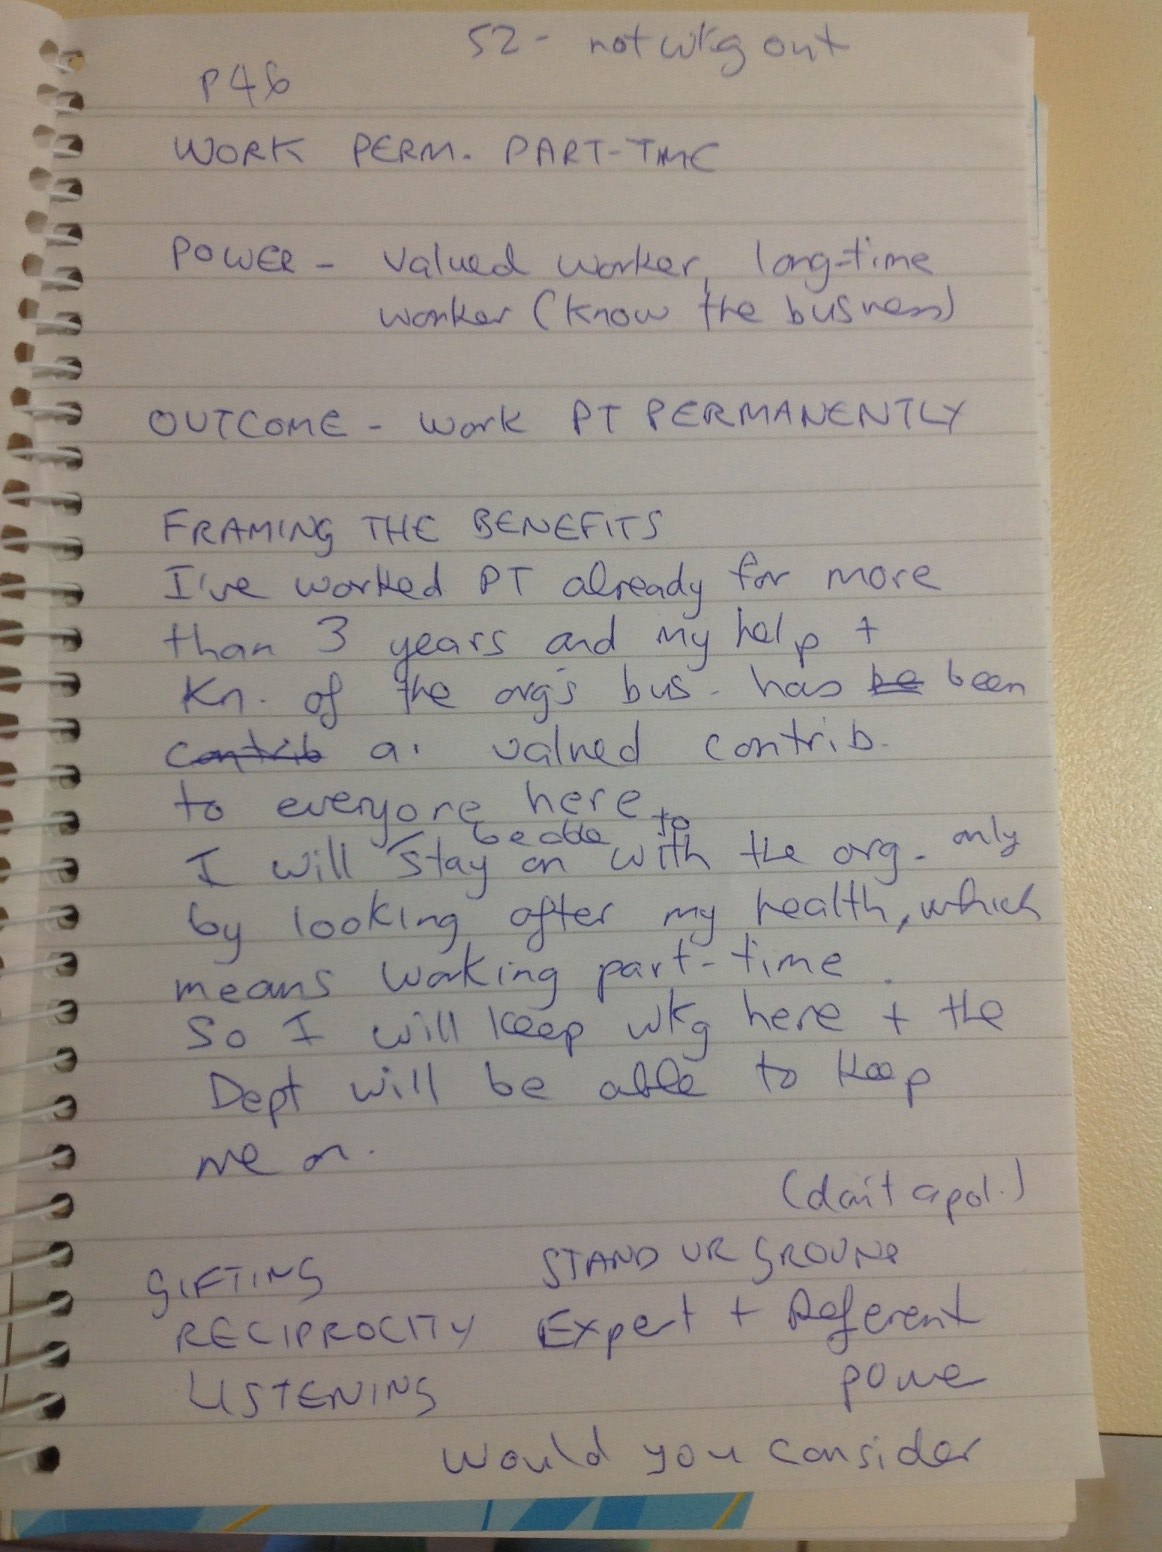 52 - not wkg out
P46
WORK PERM. PART-TIME
POWER - valued worker, long-time
worker (know the business)
OUTCOME - work PT PERMANENTLY
FRAMING THE BENEFITS
I've worked PT already for more
than 3 years and my help +
kn. of the org's bus. has be been
contrib a valued contrib.
to everyone here
be able to
I will stay on with the org. only
by looking after my health, which
means working part-time.
So I will keep wkg here + the
Dept will be able to keep
me on.
(don't apol.)
GIFTING STAND UR GROUND
RECIPROCITY Expert + Referent
LISTENING power
would you consider